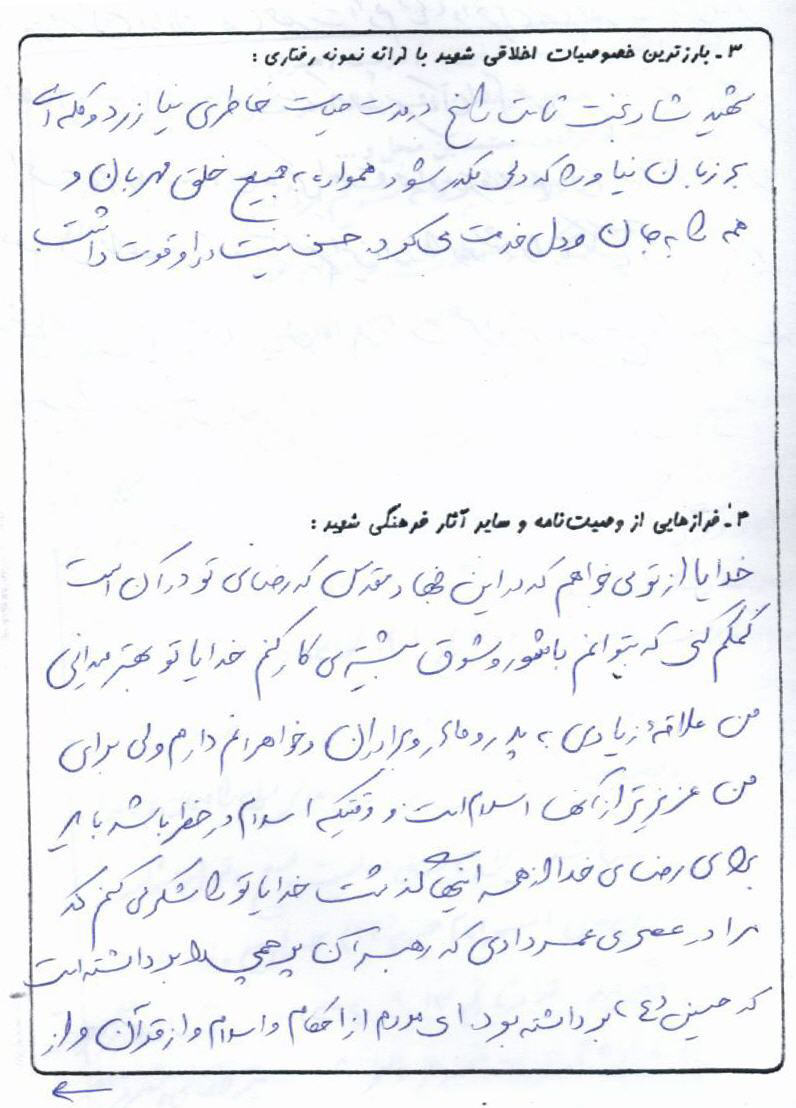 ۳ـ بارزترین خصوصیات اخلاقی شهید با ارائه نمونه رفتاری :
شهید ثابت راسخ در مدت حیات خاطری نیازرد و کلمه ای
بر زبان نیاورد که دلی مکدر شود همواره با جمیع خلق مهربان و
همه را به جان و دل خدمت می کرد. حسن نیت در او قوت داشت
۴ـ فرازهایی از وصیت‌نامه و سایر آثار فرهنگی شهید :
خدایا از تو می خواهم که در این جهاد مقدس که رضای تو در آن است
کمکم کنی که بتوانم با شور و شوق بیشتری کار کنم خدایا تو بهتر میدانی
من علاقهٔ زیادی به پدر و مادر و برادران و خواهرانم دارم ولی برای
من عزیزتر از آنها اسلام است و وقتیکه اسلام در خطر باشد باید
برای رضای خدا از همه اینها گذشت خدایا تو را شکر می کنم که
مرا در عصری عمر دادی که رهبر آن پرچمی را برداشته است
که حسین (ع) برداشته بود. ای مردم از احکام و اسلام و از قرآن و از